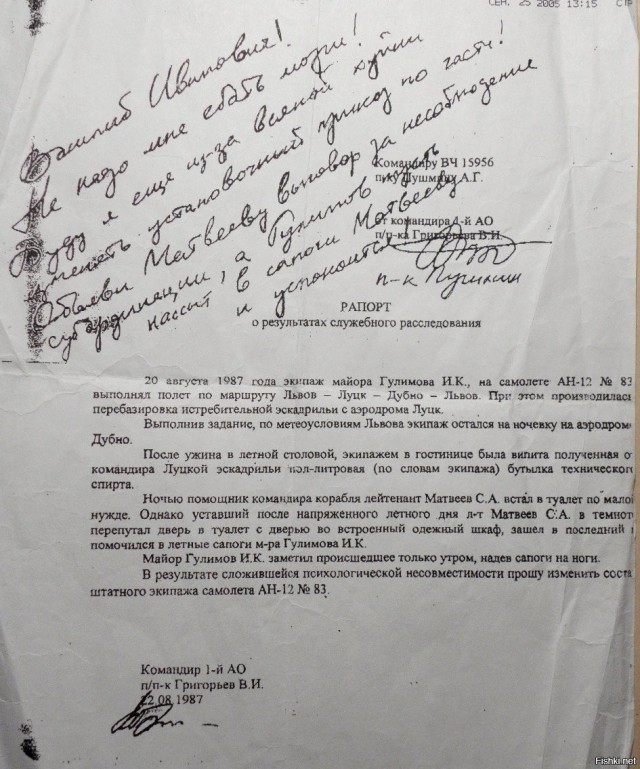 СЕН. 25 2005 13:15 СТР
Василий Иванович!
Не надо мне ебать мозги!
Буду я еще из-за всякой хуйни
менять установочный приказ по части!
Объяви Матвееву выговор за несоблюдение
субординации, а Гулимов пусть
нассыт в сапоги Матвееву
и успокоится!
п-к Пушкин
Командиру ВЧ 15956
п-ку А.Г.
от командира 1-й АО
п/п-ка Григорьева В.И.
РАПОРТ
о результатах служебного расследования
20 августа 1987 года экипаж майора Гулимова И.К., на самолете АН-12 № 83
выполнял полет по маршруту Львов – Луцк – Дубно – Львов. При этом производилась
перебазировка истребительной эскадрильи с аэродрома Луцк.
Выполнив задание, по метеоусловиям Львова экипаж остался на ночевку на аэродроме
Дубно.
После ужина в летной столовой, экипажем в гостинице была выпита полученная о
командира Луцкой эскадрильи пол-литровая (по словам экипажа) бутылка техническог
спирта.
Ночью помощник командира корабля лейтенант Матвеев С.А. встал в туалет по малой
нужде. Однако уставший после напряженного летного дня л-т Матвеев С.А. в темнот
перепутал дверь в туалет с дверью во встроенный одежный шкаф, зашел в последний и
помочился в летные сапоги м-ра Гулимова И.К.
Майор Гулимов И.К. заметил происшедшее только утром, надев сапоги на ноги.
В результате сложившейся психологической несовместимости прошу изменить соста
штатного экипажа самолета АН-12 № 83.
Командир 1-й АО
п/п-к Григорьев В.И.
22.08.1987
Fishki.net